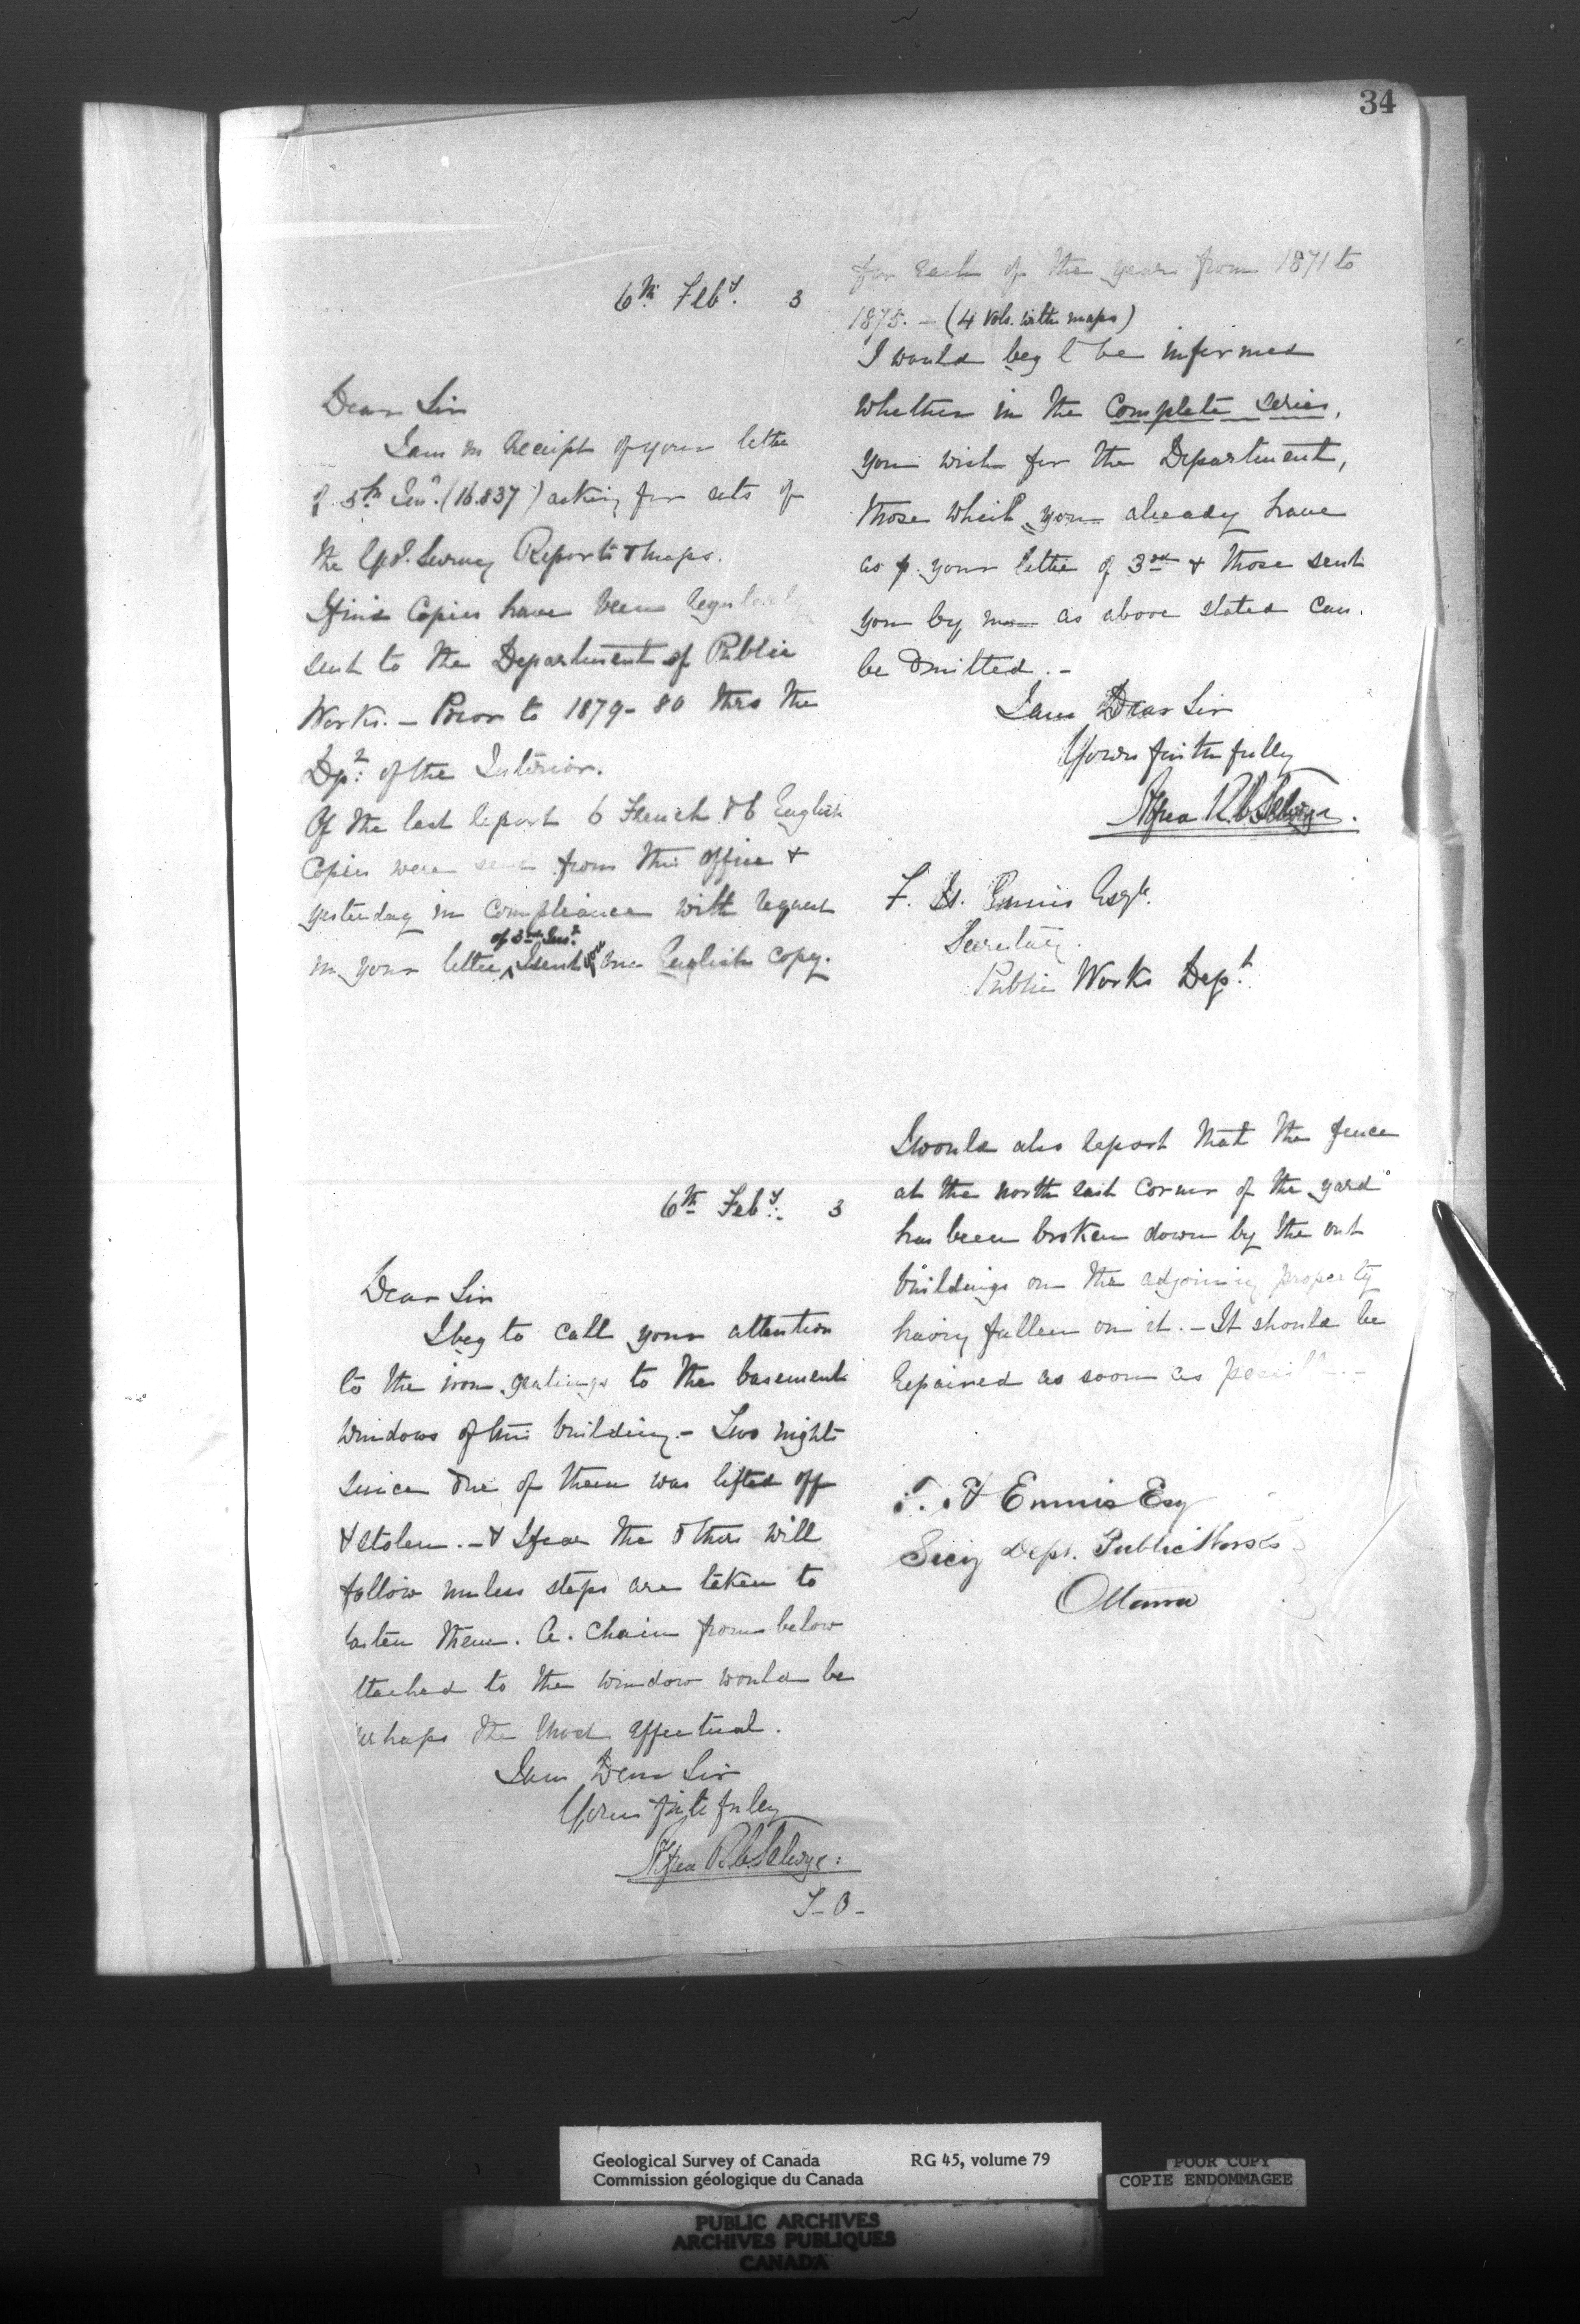 34
6th Feby. 3
Dear Sir
I am in receipt of your letter
of 5th Inst. (16.837) asking for sets of
the Geol. Survey Reports & Maps.
I find Copies have been regularly
sent to the Department of Public
Works. — Prior to 1879-80 thro the
Dpt: of the Interior.
Of the last report 6 French & 6 English
Copies were sent from this office &
yesterday in compliance with request
of 3rd Inst.
in your letter I sent you one English copy.
for each of the years from 1871 to
1875. — (4 vols. with maps)
I would beg to be informed
whether in the Complete series,
you wish for the Department,
those which you already have
as p. your letter of 3rd & those sent
you by me as above stated can
be omitted. —
I am Dear Sir
Yours faithfully
Alfred R C Selwyn.
F. H. Ennis Esqr.
Secretary
Public Works Dept.
6th Feby. 3
Dear Sir
I beg to call your attention
to the iron gratings to the basement
windows of this building. — Two nights
since one of them was lifted off
& stolen. — & I fear the others will
follow unless steps are taken to
fasten them. A chain from below
ttached to the window would be
perhaps the most effectual.
I am Dear Sir
Yours faithfully
Alfred R C Selwyn:
T. O.
I would also report that the fence
at the north east corner of the yard
has been broken down by the out
buildings on the adjoining property
having fallen on it. — It should be
repaired as soon as possible. —
F. H Ennis Esq
Secy Dept. Public Works
Ottawa
Geological Survey of Canada RG 45, volume 79
Commission géologique du Canada
POOR COPY
COPIE ENDOMMAGEE
PUBLIC ARCHIVES
ARCHIVES PUBLIQUES
CANADA